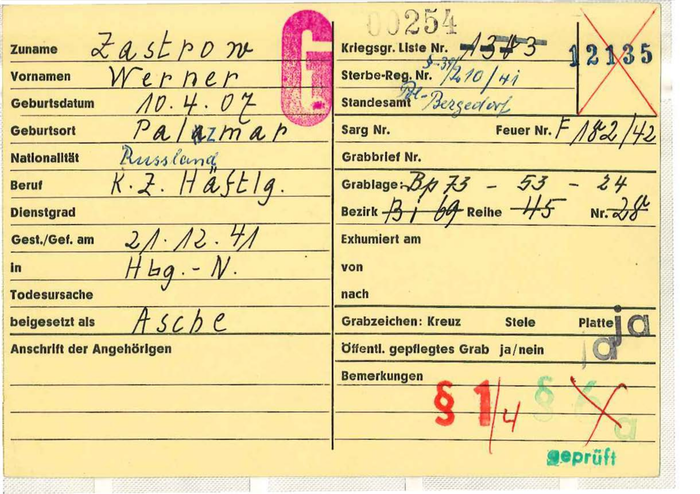 00254
Zuname Zastrow
Vornamen Werner
Geburtsdatum 10.4.07
Geburtsort
Nationalität Russland
Beruf K.Z. Häftlg.
Dienstgrad
Gest./Gef. am 21.12.41
in Hbg.-N.
Todesursache
beigesetzt als Asche
Anschrift der Angehörigen
G
Kriegsgr. Liste Nr.
12135
Sterbe-Reg. Nr. 210/41
Standesamt Bergedorf
Sarg Nr. Feuer Nr. F 182/42
Grabbrief Nr.
Grablage: Bp 73 - 53 - 24
Bezirk Bi 69 Reihe 45 Nr. 28
Exhumiert am
von
nach
Grabzeichen: Kreuz Stele Platte ja
Öffentl. gepflegtes Grab ja/nein ja
Bemerkungen
§ 1/4 § 6 a
geprüft